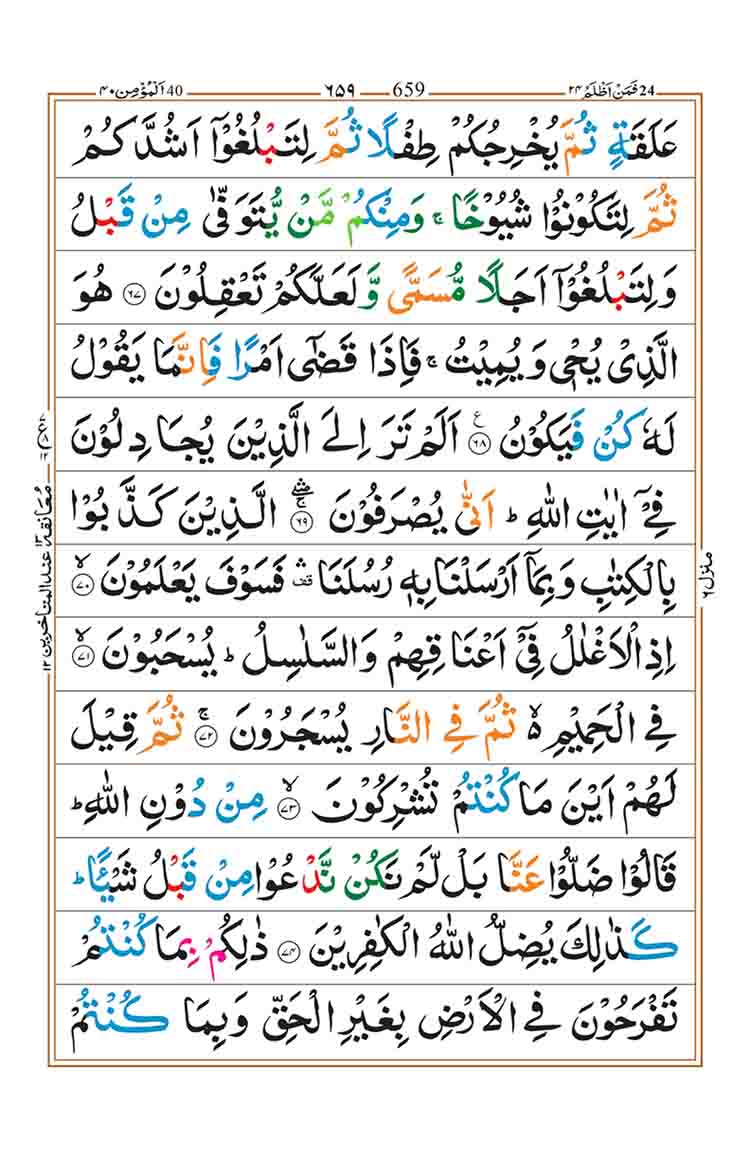 40 اَلْمُؤْمِن ۴۰
۶۵۹ 659
24 فَمَنْ اَظْلَمُ ۲۴
عَلَقَةٍ ثُمَّ يُخْرِجُكُمْ طِفْلًا ثُمَّ لِتَبْلُغُوْٓا اَشُدَّكُمْ
ثُمَّ لِتَكُوْنُوْا شُيُوْخًا ۚ وَمِنْكُمْ مَّنْ يُّتَوَفّٰى مِنْ قَبْلُ
وَلِتَبْلُغُوْٓا اَجَلًا مُّسَمًّى وَّلَعَلَّكُمْ تَعْقِلُوْنَ ﴿۶۷﴾ هُوَ
الَّذِيْ يُحْيٖ وَيُمِيْتُ ۚ فَاِذَا قَضٰٓى اَمْرًا فَاِنَّمَا يَقُوْلُ
لَهٗ كُنْ فَيَكُوْنُ ﴿۶۸﴾ ع اَلَمْ تَرَ اِلَى الَّذِيْنَ يُجَادِلُوْنَ
فِيْٓ اٰيٰتِ اللّٰهِ ؕ اَنّٰى يُصْرَفُوْنَ ﴿۶۹﴾ الَّذِيْنَ كَذَّبُوْا
بِالْكِتٰبِ وَبِمَآ اَرْسَلْنَا بِهٖ رُسُلَنَا ۛ قف فَسَوْفَ يَعْلَمُوْنَ ﴿۷۰﴾ ۙ
اِذِ الْاَغْلٰلُ فِيْٓ اَعْنَاقِهِمْ وَالسَّلٰسِلُ ؕ يُسْحَبُوْنَ ﴿۷۱﴾ ۙ
فِي الْحَمِيْمِ ۙ ثُمَّ فِي النَّارِ يُسْجَرُوْنَ ﴿۷۲﴾ ۚ ثُمَّ قِيْلَ
لَهُمْ اَيْنَ مَا كُنْتُمْ تُشْرِكُوْنَ ﴿۷۳﴾ ۙ مِنْ دُوْنِ اللّٰهِ ؕ
قَالُوْا ضَلُّوْا عَنَّا بَلْ لَّمْ نَكُنْ نَّدْعُوْا مِنْ قَبْلُ شَيْـًٔا ؕ
كَذٰلِكَ يُضِلُّ اللّٰهُ الْكٰفِرِيْنَ ﴿۷۴﴾ ذٰلِكُمْ بِمَا كُنْتُمْ
تَفْرَحُوْنَ فِي الْاَرْضِ بِغَيْرِ الْحَقِّ وَبِمَا كُنْتُمْ
معانقة ۱۳ عند المتاخرين ۱۲
منزل ۶